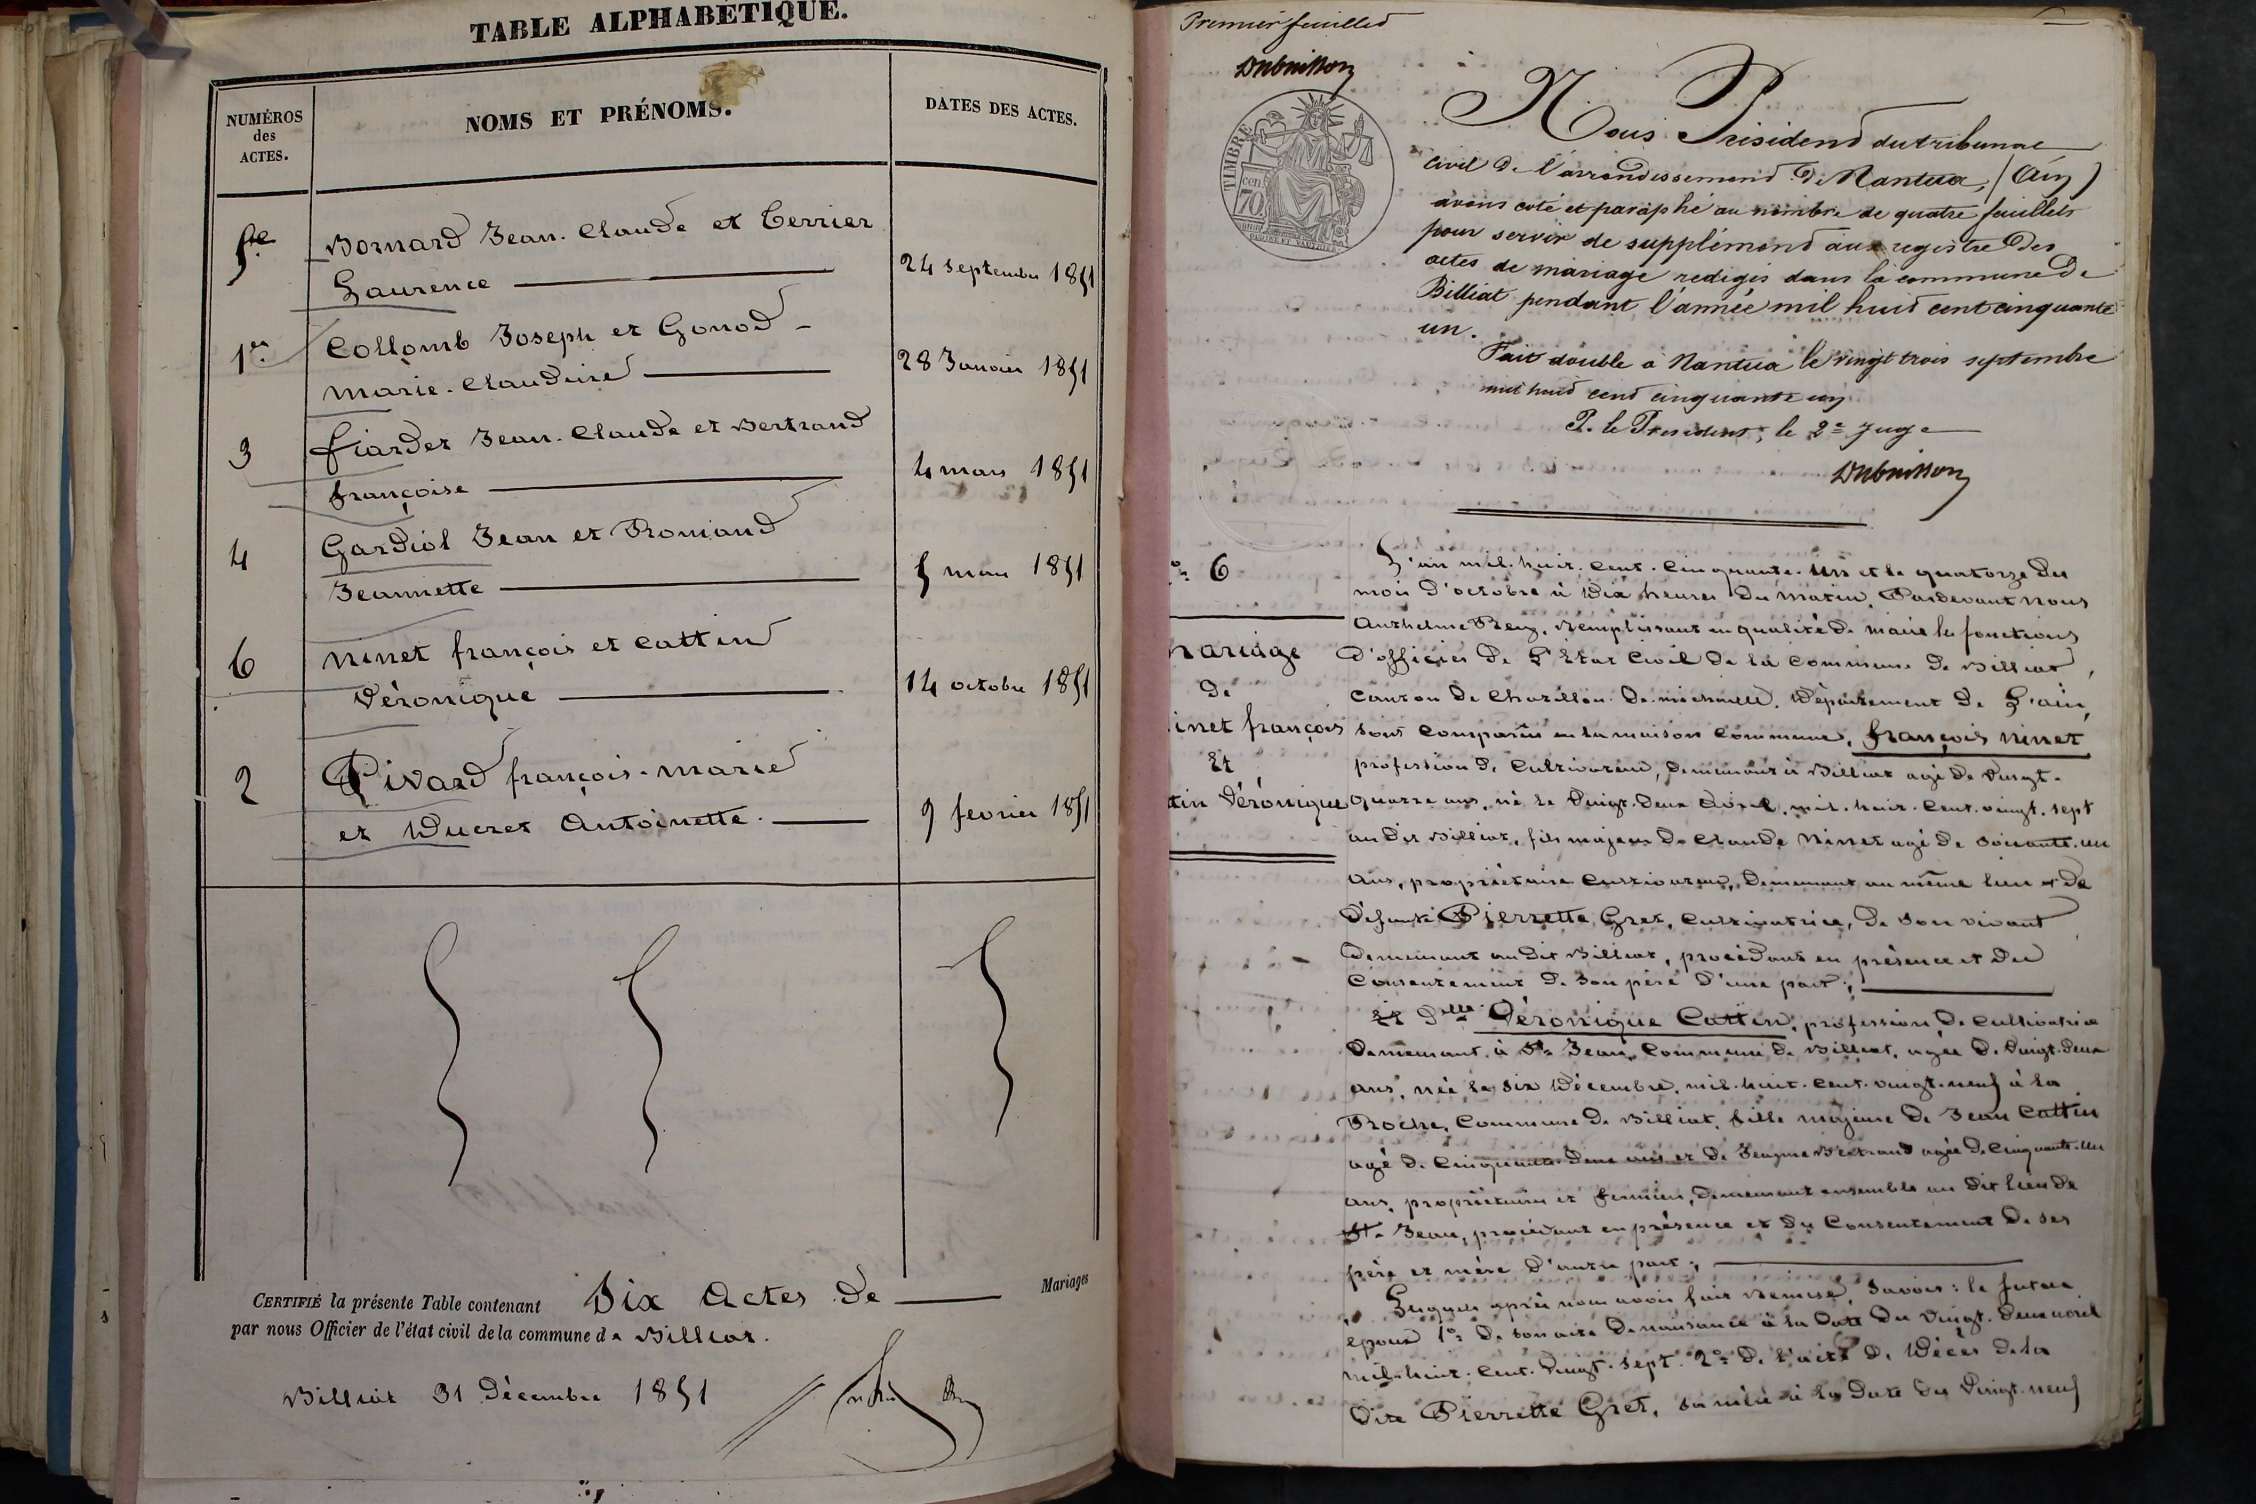 TABLE ALPHABÉTIQUE.
NUMÉROS
des
ACTES.
NOMS ET PRÉNOMS.
DATES DES ACTES.
5e
Bornard Jean-Claude et Terrier
Laurence
24 septembre 1851
1er
Collomb Joseph et Gonod
Marie-Claudine
28 Janvier 1851
3
fiardet Jean-Claude et Bertrand
françoise
4 mars 1851
4
Gardiol Jean et Romand
Jeannette
5 mars 1851
6
Ninet françois et Cattin
Véronique
14 octobre 1851
2
Pivard françois-marie
et Ducret Antoinette
9 fevrier 1851
CERTIFIÉ la présente Table contenant Six Actes de Mariages
par nous Officier de l'état civil de la commune de Billiat.
Billiat 31 Décembre 1851
Premier feuillet
Dubuisson
TIMBRE
70 cent
Nous Président du tribunal
civil de l'arrondissement de Nantua, (Ain)
avons coté et paraphé au nombre de quatre feuillets
pour servir de supplément aux registre des
actes de mariage rédigés dans la commune de
Billiat pendant l'année mil huit cent cinquante
un.
Fait double à Nantua le vingt trois septembre
mil huit cent cinquante un
P. le Président, le 2e Juge
Dubuisson
6
Mariage
de
inet françois
Et
tin Véronique
L'an mil-huit-cent-cinquante-un et le quatorze du
mois d'octobre à Dix heures du matin, Pardevant nous
Anthelme Rey, Remplissant en qualité de maire les fonctions
d'officier de l'Etat Civil de la Commune de Billiat,
Canton de Chatillon-de-michaille, Département de l'ain,
sont comparus en la maison Commune, françois Ninet
profession de Cultivateur, demeurant à Billiat agé de Vingt-
quatre ans, né le Vingt-deux avril, mil-huit-cent-vingt-sept
au dit Billiat, fils majeur de Claude Ninet agé de soixante-un
ans, propriétaire Cultivateur, demeurant au même lieu et de
défunte Pierrette Gret, Cultivatrice, de son vivant
demeurant au dit Billiat, procédant en présence et du
Consentement de son père d'une part;
Et Delle Véronique Cattin, profession de Cultivatrice
demeurant à St Jean, Commune de Billiat, agée de Vingt-deux
ans, née le six Décembre, mil-huit-cent-vingt-neuf à la
Roche, Commune de Billiat, fille majeure de Jean Cattin
agé de Cinquante-deux ans et de Bertrand agée de Cinquante-un
ans, propriétaires et fermiers, demeurant ensemble au dit lieu de
St Jean, procédant en présence et du Consentement de ses
père et mère d'autre part;
Lesquels après nous avoir fait Remise, Savoir: le futur
époux 1o de son acte de naissance à la date du Vingt-deux avril
mil-huit-cent-vingt-sept. 2o de l'acte de Décès de la
dite Pierrette Gret, sa mère à la date du Vingt-neuf